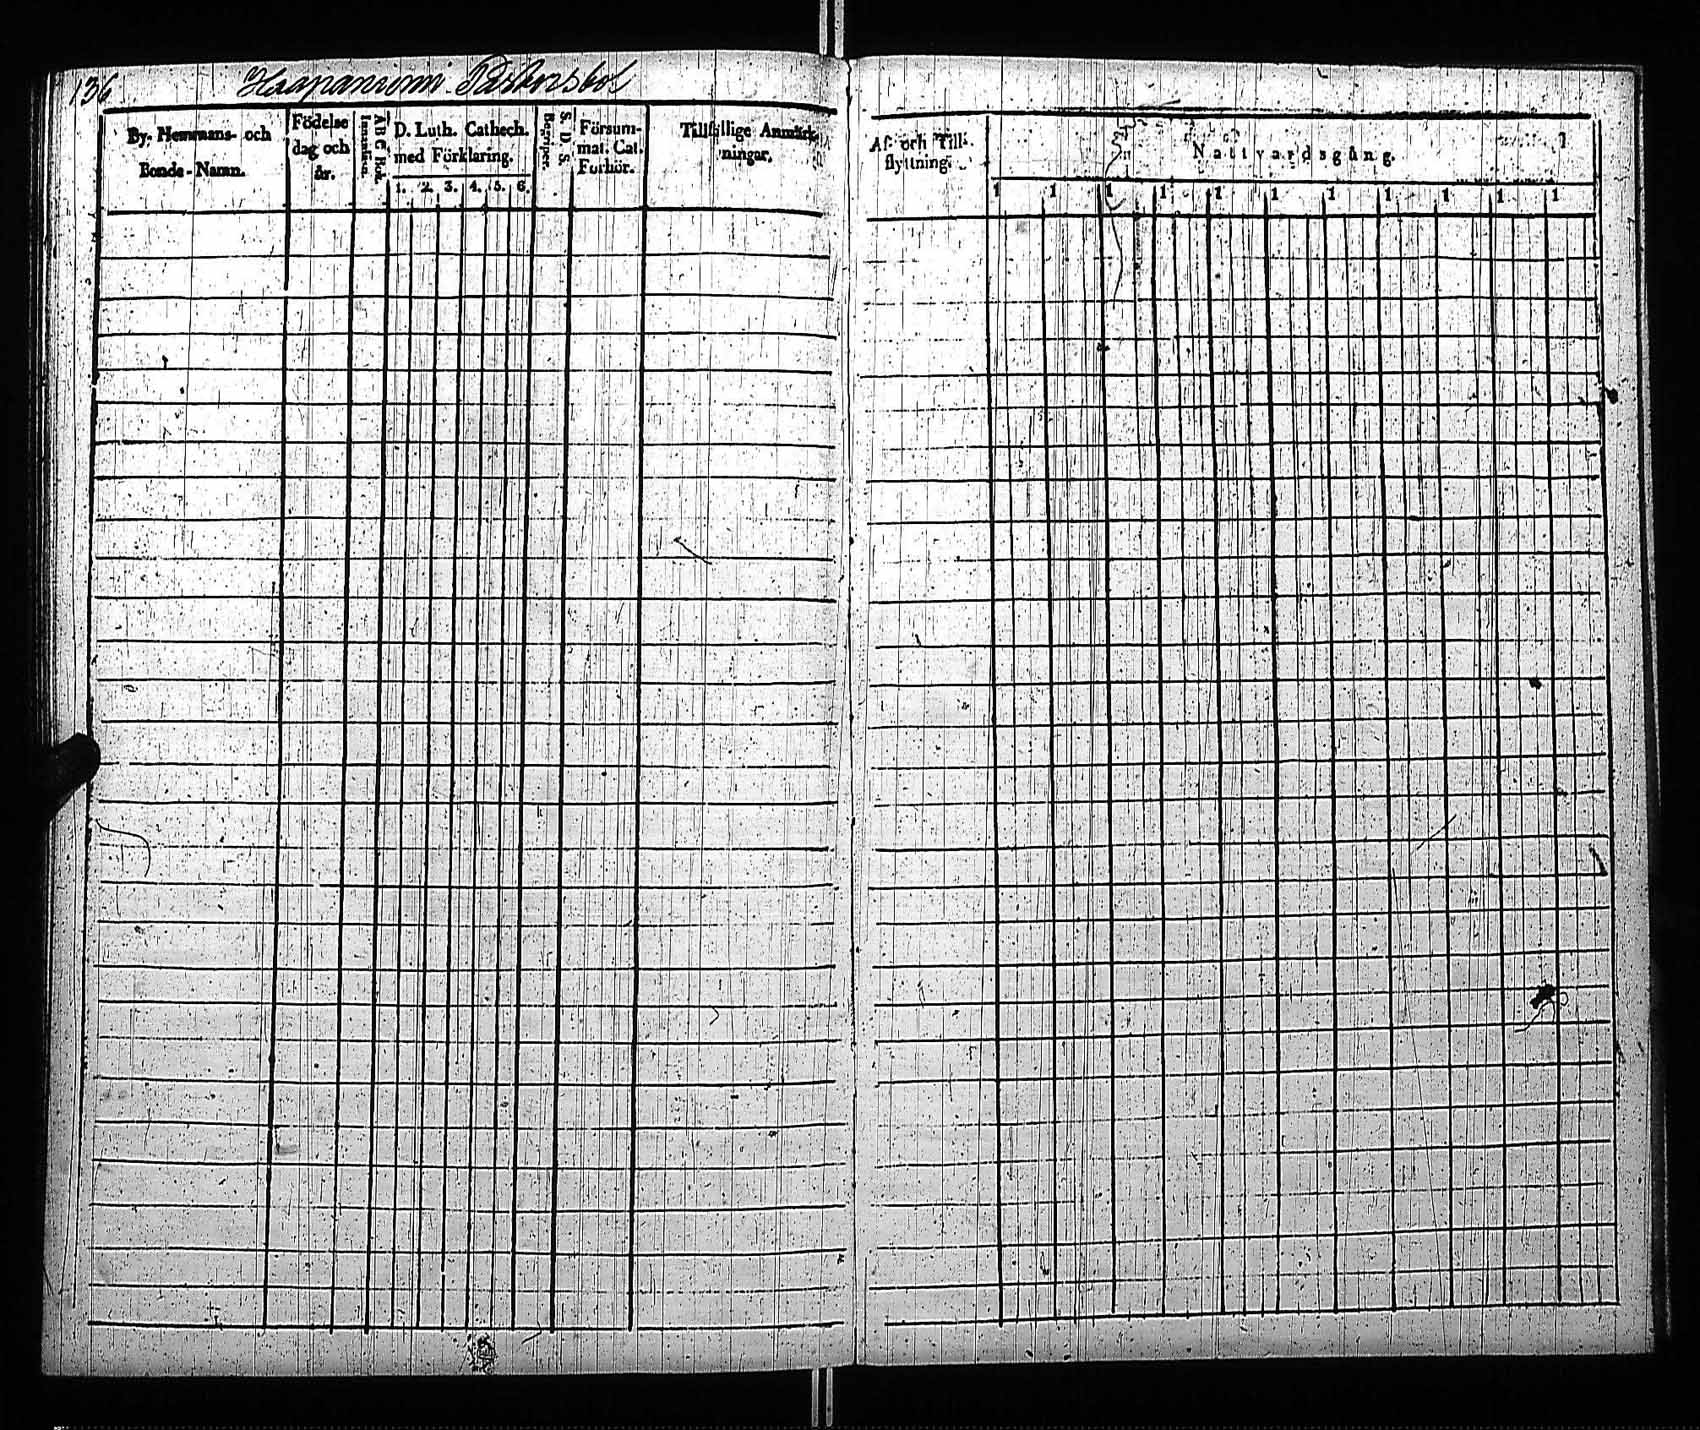 136 Haapaniemi
By, Hemmans- och
Bonde-Namn.
Födelse
dag och
år.
A B C Bok.
Innanläsn.
D. Luth. Cathech.
med Förklaring.
1. 2. 3. 4. 5. 6.
S. D. S.
Begriper.
Försum-
mat. Cat.
Förhör.
Tillfällige Anmärk-
ningar.
Af- och Till-
flyttning.
Nattvardsgång.
1 1 1 1 1 1 1 1 1 1 1